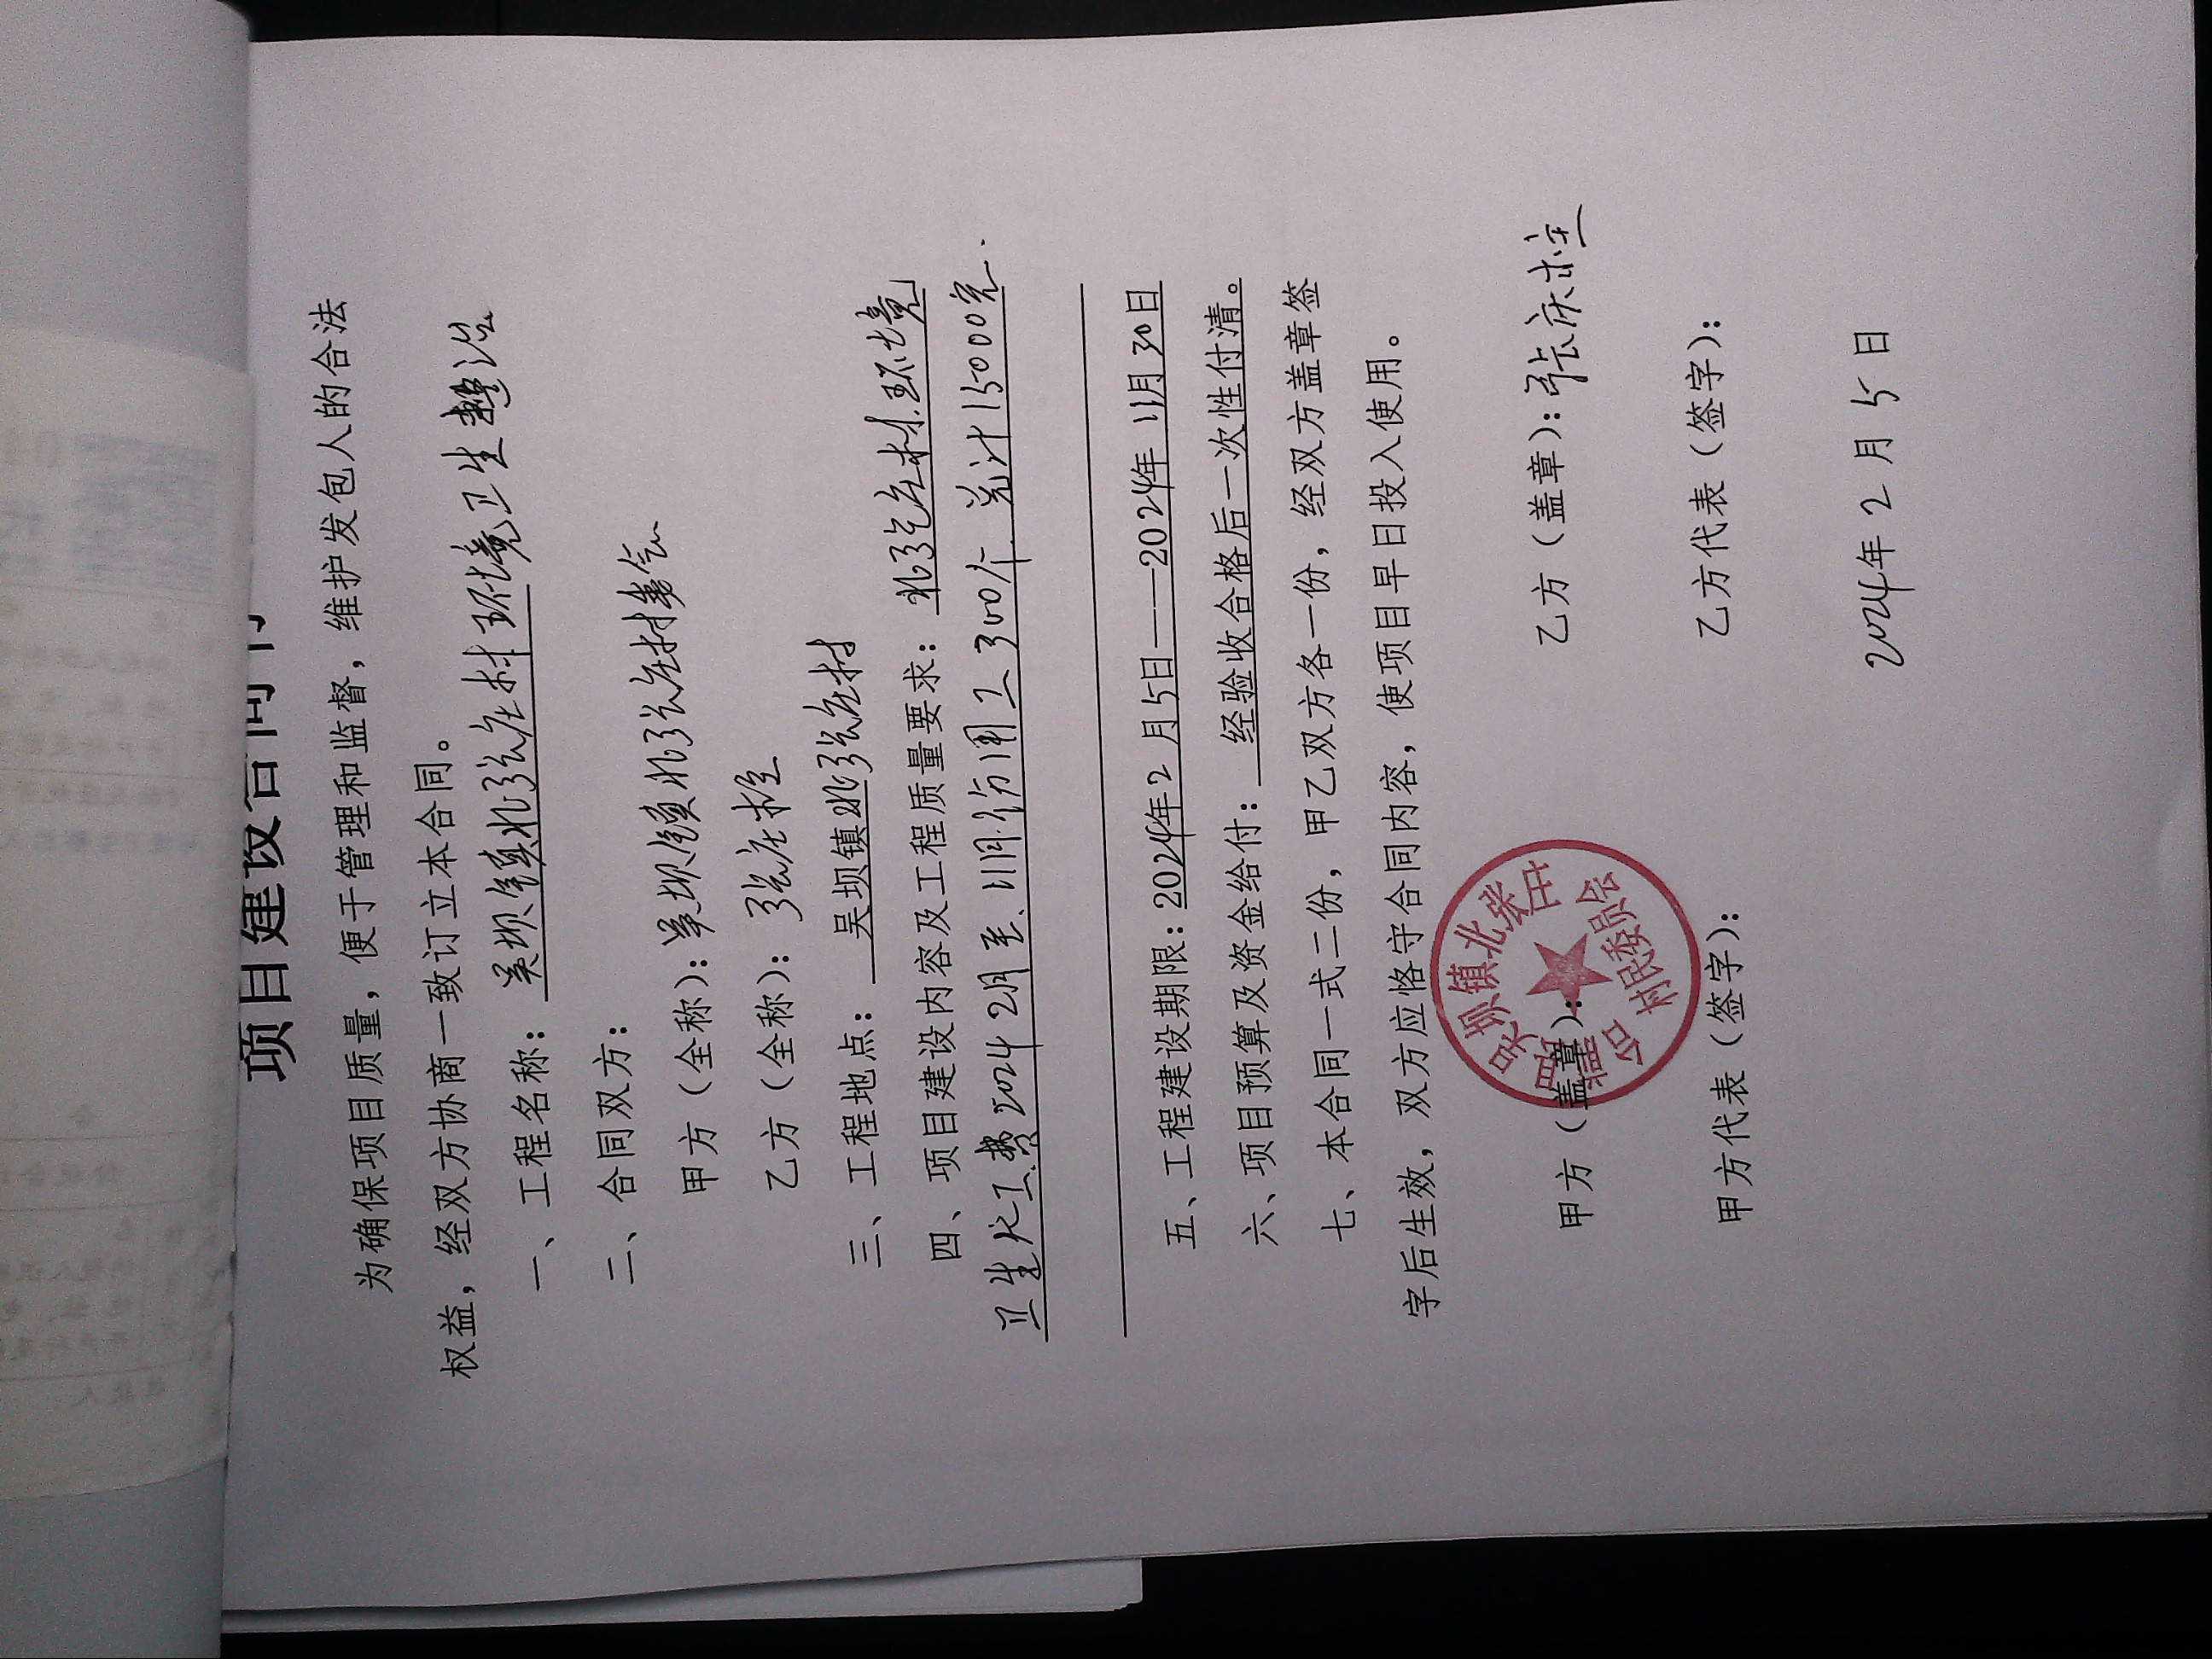 项目建设合同书
为确保项目质量，便于管理和监督，维护发包人的合法
权益，经双方协商一致订立本合同。
一、工程名称：吴坝镇北张庄村环境卫生整治
二、合同双方：
甲方（全称）：吴坝镇北张庄村委会
乙方（全称）：张庆栓
三、工程地点：吴坝镇北张庄村
四、项目建设内容及工程质量要求：北张庄村环境
卫生化工费2024 2月至11月份用工300个 总计15000元.
五、工程建设期限：2024年2月5日——2024年11月30日
六、项目预算及资金给付：经验收合格后一次性付清。
七、本合同一式二份，甲乙双方各一份，经双方盖章签
字后生效，双方应恪守合同内容，使项目早日投入使用。
甲方（盖章）： 乙方（盖章）：张庆栓
吴坝镇北张庄
村民委员会
甲方代表（签字）： 乙方代表（签字）：
2024年2月5日